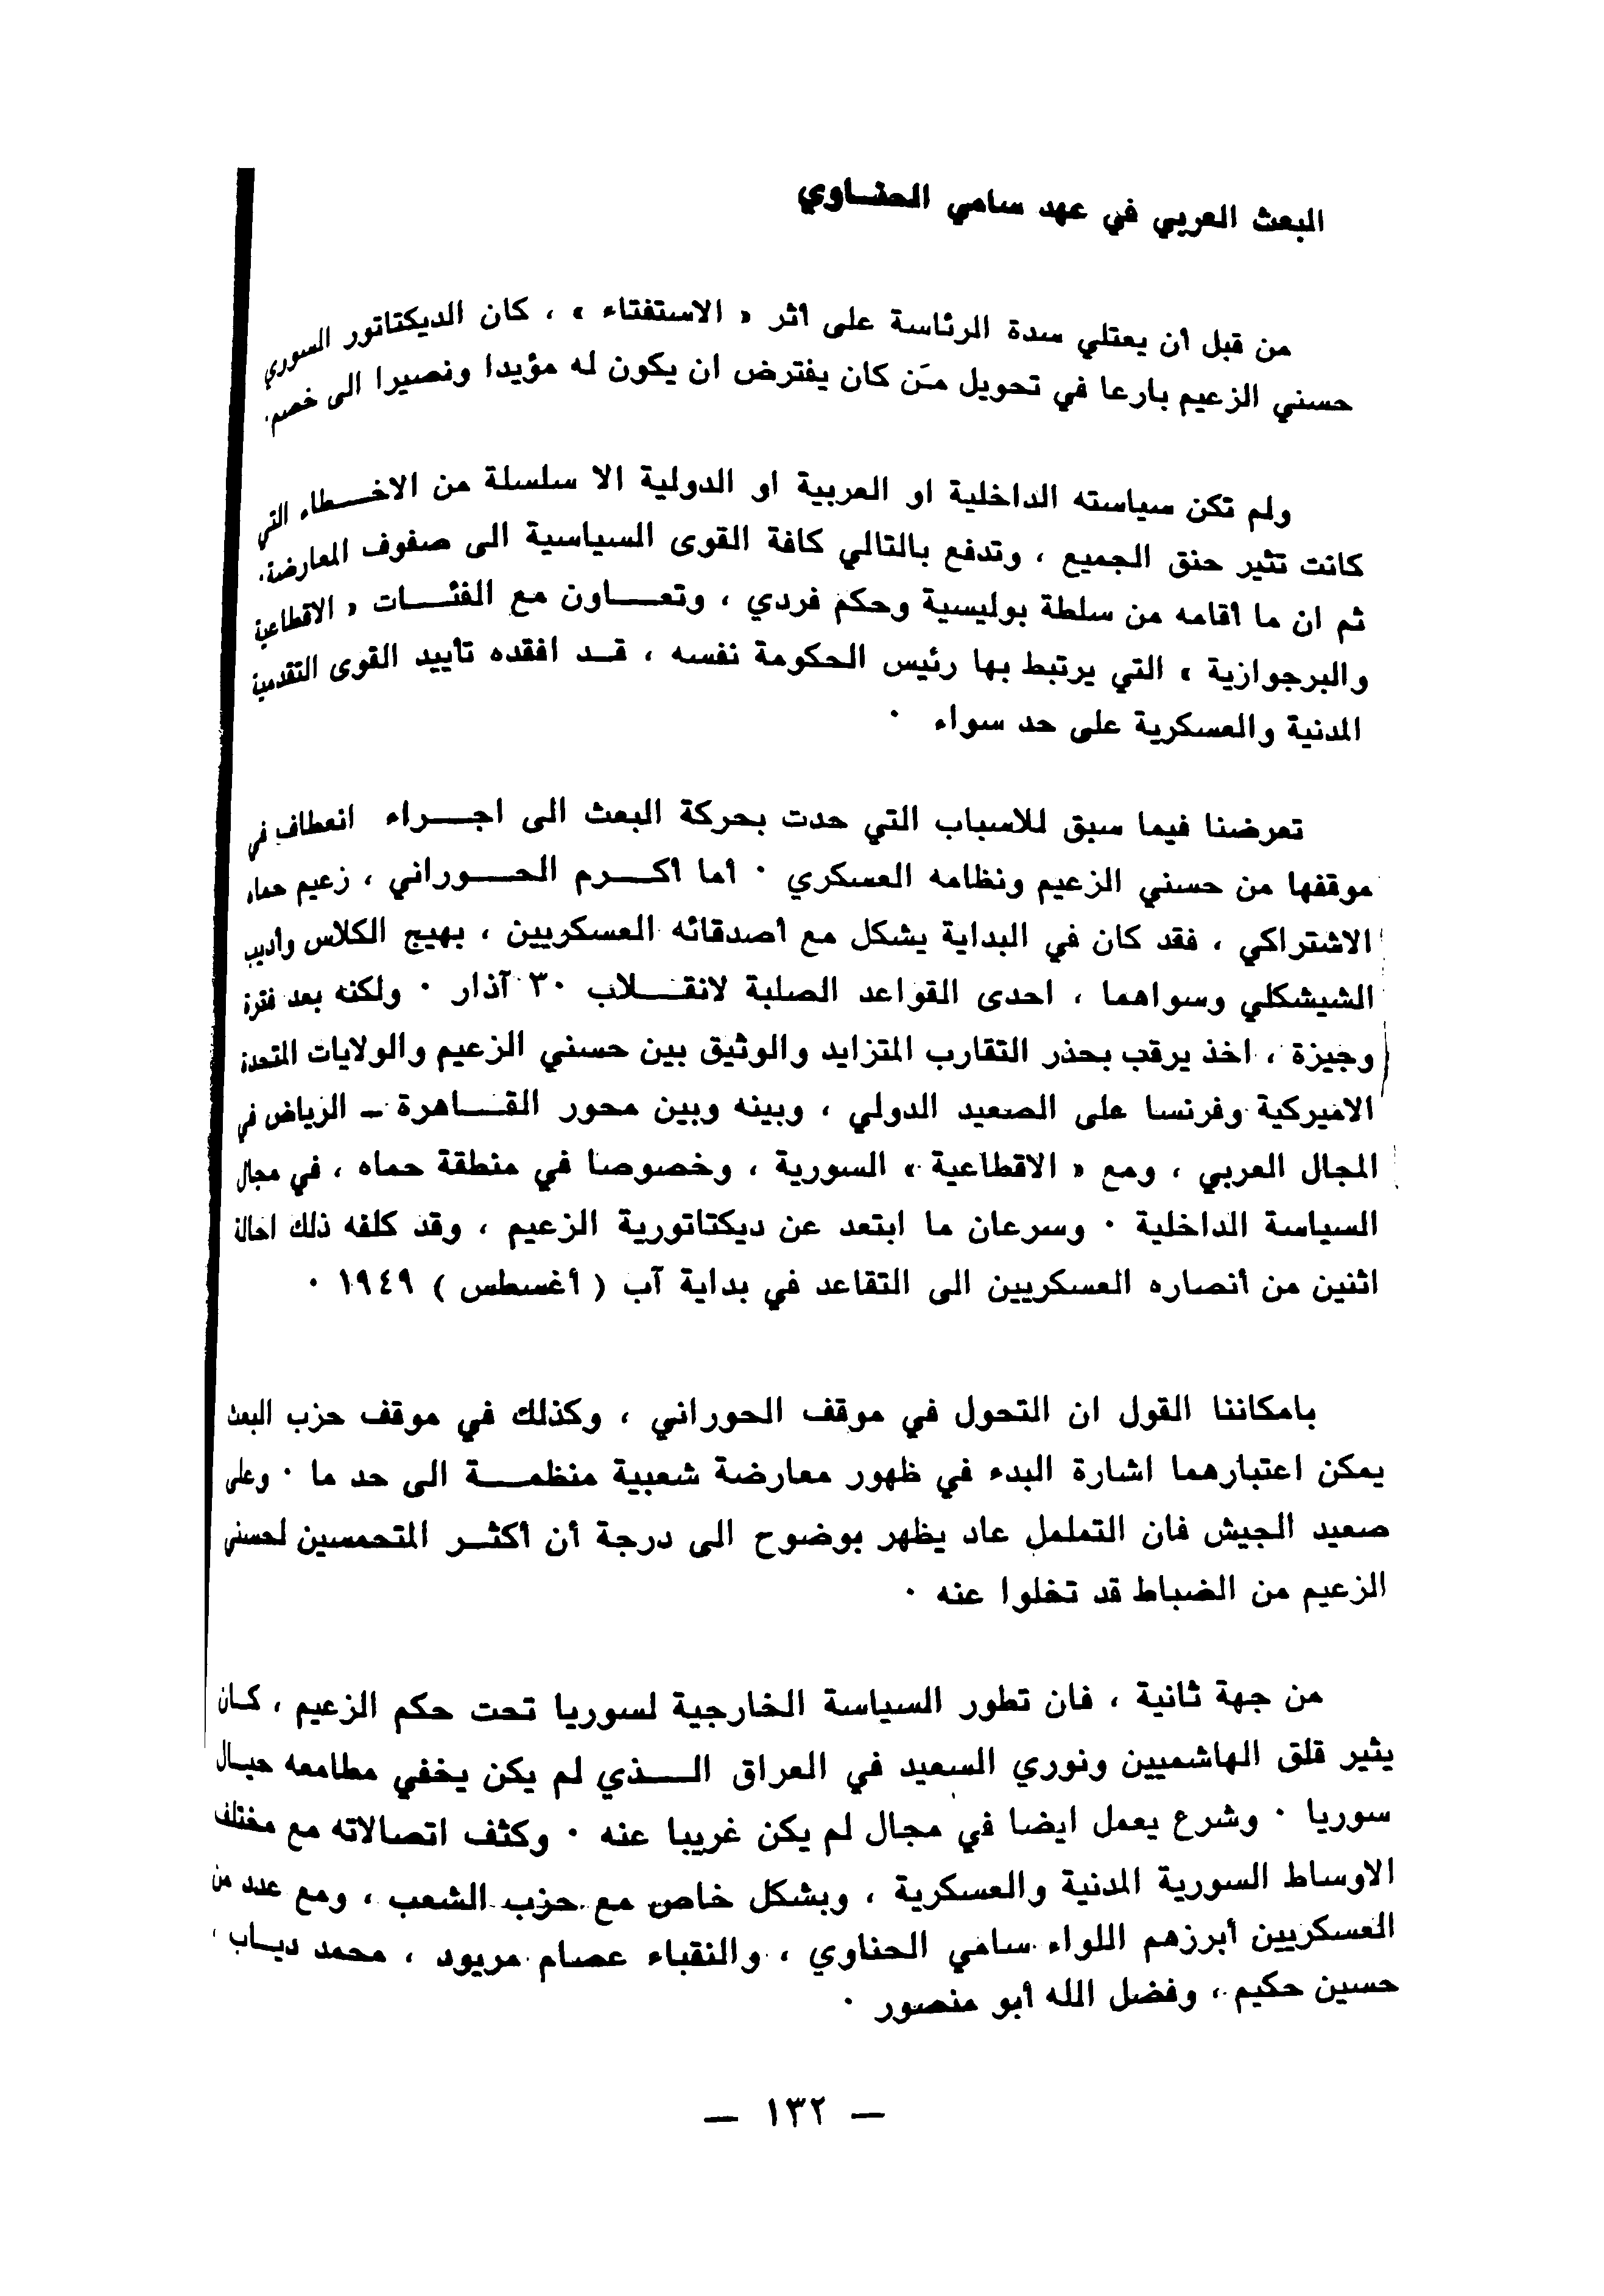 البعث العربي في عهد سامي الحنـاوي
من قبل أن يعتلي سدة الرئاسة على أثر « الاستفتاء » ، كان الديكتاتور السوري
حسني الزعيم بارعا في تحويل مَن كان يفترض ان يكون له مؤيدا ونصيرا الى خصم٠
ولم تكن سياسته الداخلية او العربية او الدولية الا سلسلة من الاخــطاء التي
كانت تثير حنق الجميع ، وتدفع بالتالي كافة القوى السياسية الى صفوف المعارضة٠
ثم ان ما أقامه من سلطة بوليسية وحكم فردي ، وتعــاون مع الفئــات « الاقطاعية
والبرجوازية » التي يرتبط بها رئيس الحكومة نفسه ، قـد افقده تأييد القوى التقدمية
المدنية والعسكرية على حد سواء ٠
تعرضنا فيما سبق للاسباب التي حدت بحركة البعث الى اجــراء انعطاف في
موقفها من حسني الزعيم ونظامه العسكري ٠ أما أكــرم الحــوراني ، زعيم حماه
الاشتراكي ، فقد كان في البداية يشكل مع أصدقائه العسكريين ، بهيج الكلاس وأديب
الشيشكلي وسواهما ، احدى القواعد الصلبة لانقــلاب ٣٠ آذار ٠ ولكنه بعد فترة
وجيزة ، اخذ يرقب بحذر التقارب المتزايد والوثيق بين حسني الزعيم والولايات المتحدة
الاميركية وفرنسا على الصعيد الدولي ، وبينه وبين محور القــاهرة ــ الرياض في
المجال العربي ، ومع « الاقطاعية » السورية ، وخصوصا في منطقة حماه ، في مجال
السياسة الداخلية ٠ وسرعان ما ابتعد عن ديكتاتورية الزعيم ، وقد كلفه ذلك احالة
اثنين من أنصاره العسكريين الى التقاعد في بداية آب ( أغسطس ) ١٩٤٩ ٠
بامكاننا القول ان التحول في موقف الحوراني ، وكذلك في موقف حزب البعث
يمكن اعتبارهما اشارة البدء في ظهور معارضة شعبية منظمــة الى حد ما ٠ وعلى
صعيد الجيش فان التململ عاد يظهر بوضوح الى درجة أن أكثـر المتحمسين لحسني
الزعيم من الضباط قد تخلوا عنه ٠
من جهة ثانية ، فان تطور السياسة الخارجية لسوريا تحت حكم الزعيم ، كـان
يثير قلق الهاشميين ونوري السعيد في العراق الــذي لم يكن يخفي مطامعه حيـال
سوريا ٠ وشرع يعمل ايضا في مجال لم يكن غريبا عنه ٠ وكثف اتصالاته مع مختلف
الاوساط السورية المدنية والعسكرية ، وبشكل خاص مع حزب الشعب ، ومع عدد من
العسكريين أبرزهم اللواء سامي الحناوي ، والنقباء عصام مريود ، محمد ديـاب ،
حسين حكيم ، وفضل الله أبو منصور ٠
— ١٣٢ —